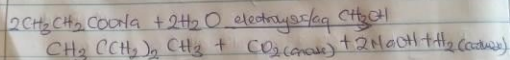 2CH3CH2COONa + 2H2O electrolysis/aq CH3OH
CH3(CH2)2CH3 + CO2(anode) + 2NaOH + H2(cathode)